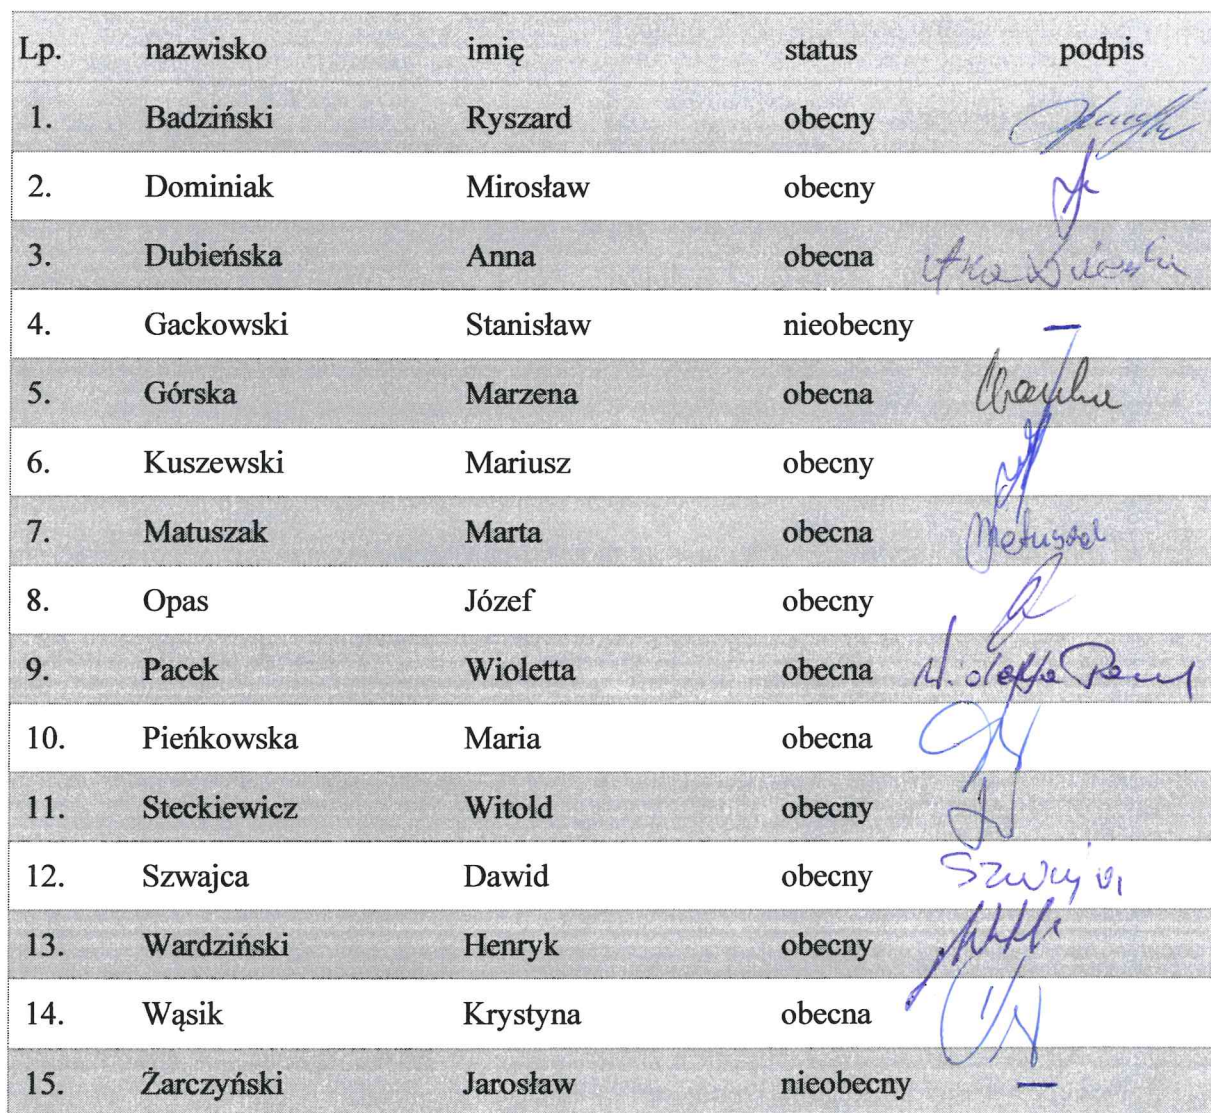 Lp. nazwisko imię status podpis
1. Badziński Ryszard obecny
2. Dominiak Mirosław obecny
3. Dubieńska Anna obecna
4. Gackowski Stanisław nieobecny –
5. Górska Marzena obecna
6. Kuszewski Mariusz obecny
7. Matuszak Marta obecna
8. Opas Józef obecny
9. Pacek Wioletta obecna
10. Pieńkowska Maria obecna
11. Steckiewicz Witold obecny
12. Szwajca Dawid obecny
13. Wardziński Henryk obecny
14. Wąsik Krystyna obecna
15. Żarczyński Jarosław nieobecny –